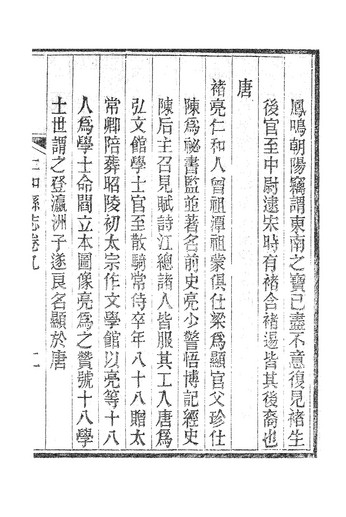 鳳鳴朝陽竊謂東南之寶已盡不意復見褚生
後官至中尉逮宋時有褚含褚逷皆其後裔也
唐
褚亮仁和人曾祖潭祖蒙俱仕梁為顯官父珍仕
陳為祕書監並著名前史亮少警悟博記經史
陳后主召見賦詩江總諸人皆服其工入唐為
弘文館學士官至散騎常侍卒年八十八贈太
常卿陪葬昭陵初太宗作文學館以亮等十八
人為學士命閻立本圖像亮為之贊號十八學
士世謂之登瀛洲子遂良名顯於唐
仁和縣志卷九